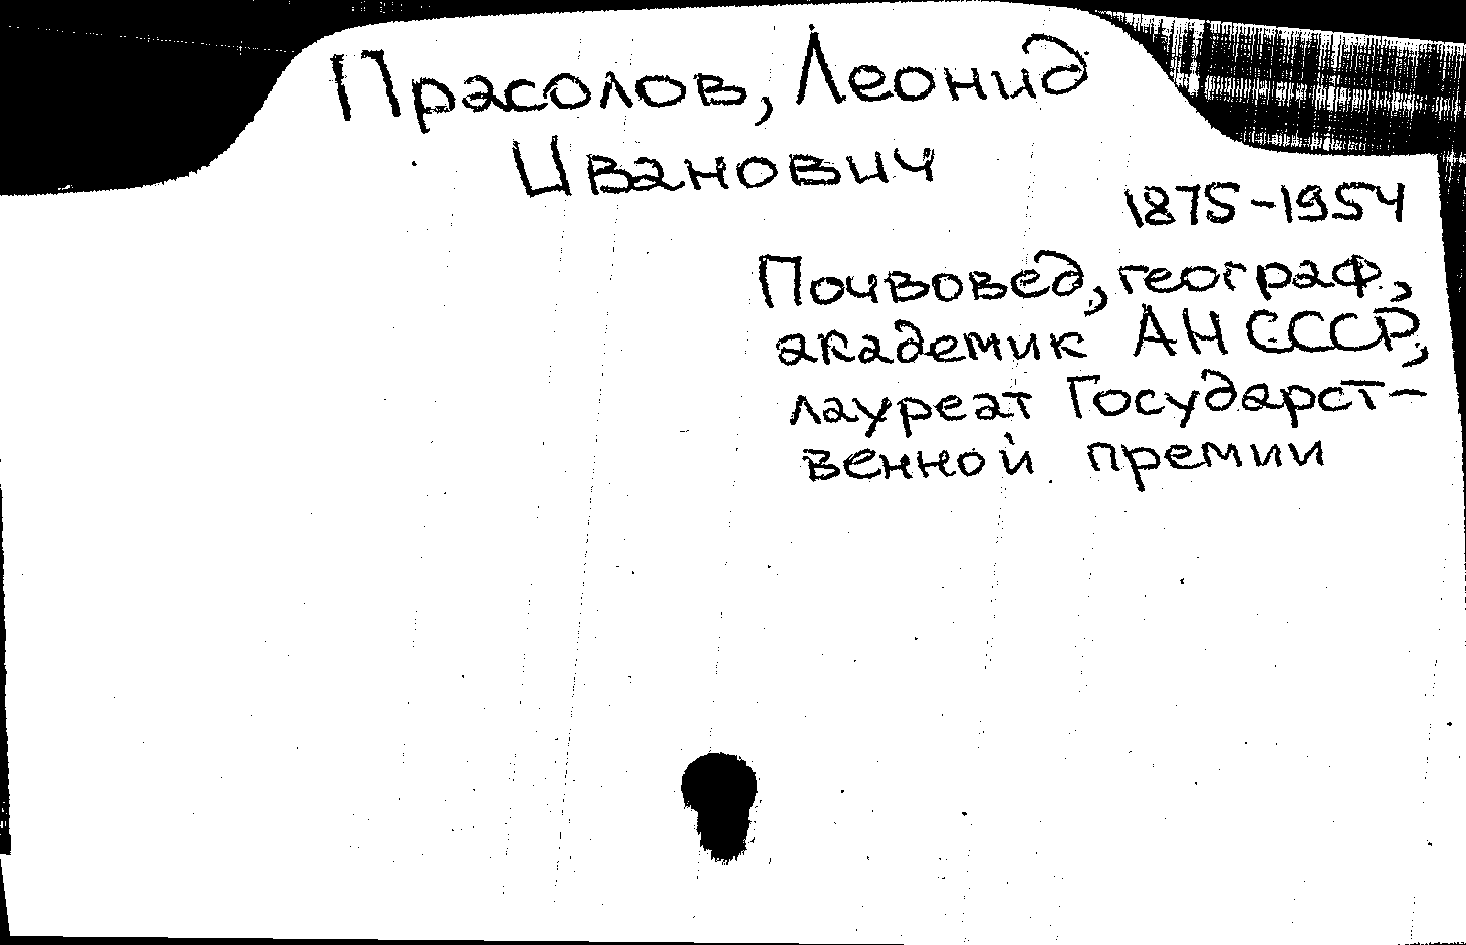 Прасолов, Леонид
Иванович
1875-1954
Почвовед, географ,
академик АН СССР,
лауреат Государст-
венной премии